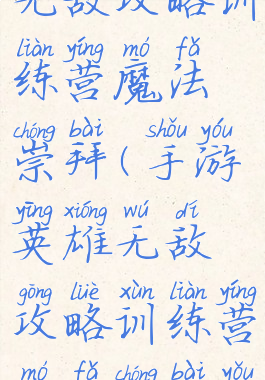 无敌攻略训
liàn yíng mó fǎ
练营魔法
chóng bài shǒu yóu
崇拜(手游
yīng xióng wú dí
英雄无敌
gōng lüè xùn liàn yíng
攻略训练营
mó fǎ chóng bài yǒu